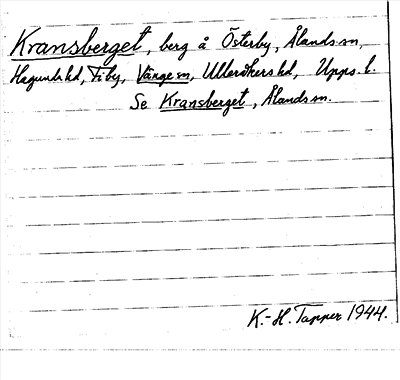 Kransberget, berg å Österby, Ålands sn,
Hagunda hd, Fiby, Vänge sn, Ulleråkers hd, Upps. l.
Se Kransberget, Ålands sn.
K.-H. Tapper 1944.